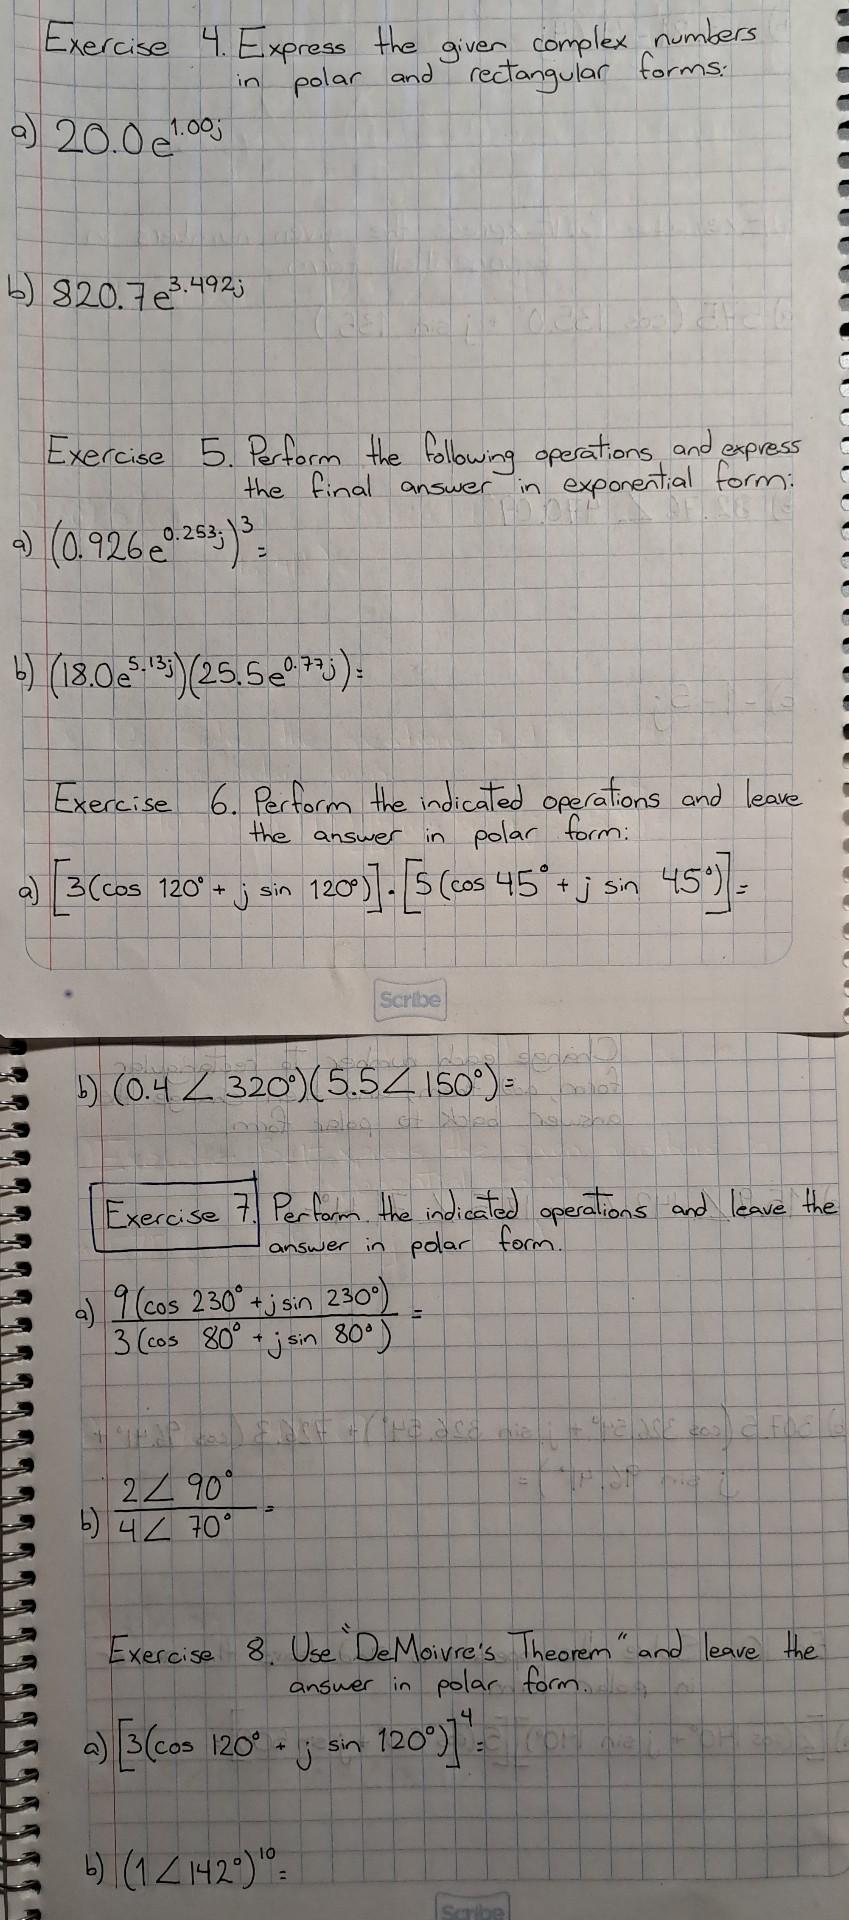 Exercise 4. Express the given complex numbers
in polar and rectangular forms:
a) 20.0e^1.00j
b) 820.7e^3.492j
Exercise 5. Perform the following operations and express
the final answer in exponential form:
a) (0.926e^0.253j)^3 =
b) (18.0e^5.13j)(25.5e^0.77j) =
Exercise 6. Perform the indicated operations and leave
the answer in polar form:
a) [3(cos 120° + j sin 120°)]·[5(cos 45° + j sin 45°)] =
Scribe
b) (0.4 ∠ 320°)(5.5 ∠ 150°) =
Exercise 7. Perform the indicated operations and leave the
answer in polar form.
a) 9(cos 230° + j sin 230°)
3(cos 80° + j sin 80°) =
b) 2∠ 90°
4∠ 70° =
Exercise 8. Use "DeMoivre's Theorem" and leave the
answer in polar form.
a) [3(cos 120° + j sin 120°)]^4 =
b) (1∠142°)^10 =
Scribe